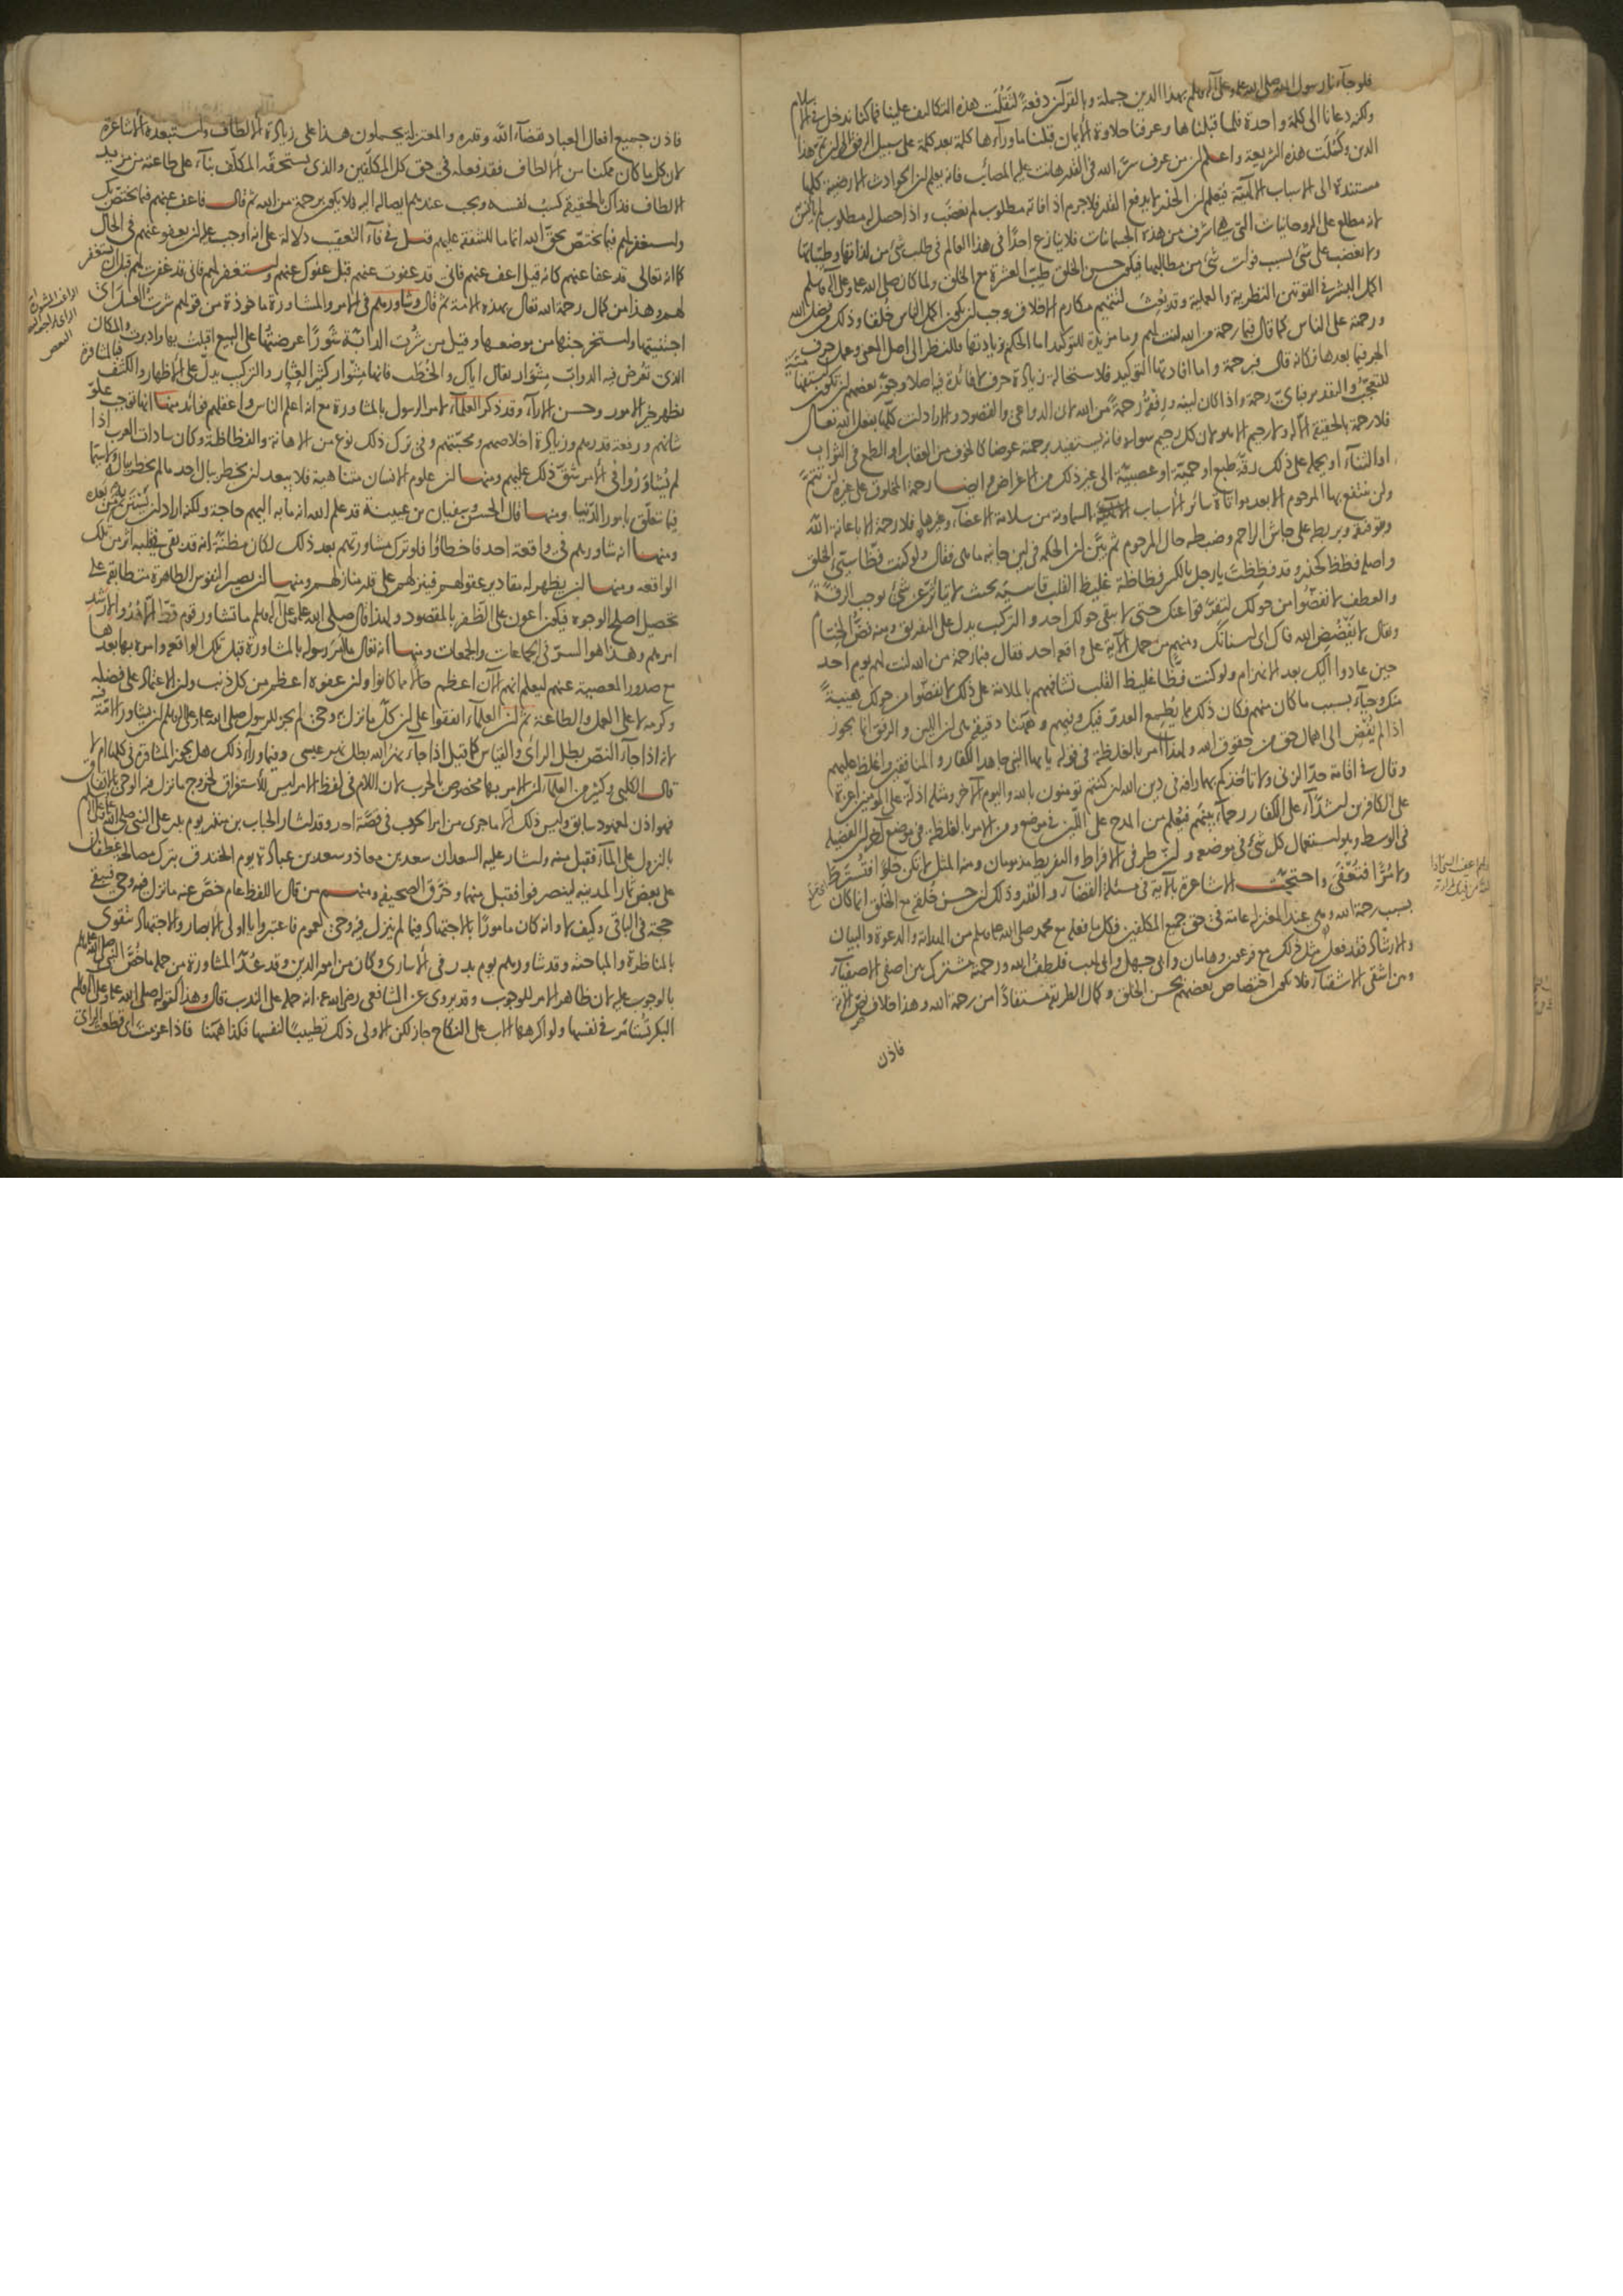 فلو جاءنا رسول الله صلى الله عليه وعلى آله وسلم بهذا الدين جملة وبالقرآن دفعة لثقلت هذه التكاليف علينا فما كنا ندخل في الإسلام
ولكنه دعانا الى كلمة واحدة فلما قبلناها وعرفنا حلاوة الإيمان قبلنا ما وراءها كلمة بعد كلمة على سبيل الرفق الى ان تم هذا
الدين وكملت هذه الشريعة واعلم ان من عرف سر الله في القدر هانت عليه المصائب فانه يعلم ان الحوادث الارضية كلها
مستندة الى الاسباب الالهية فيعلم ان الحذر لا يدفع القدر فلا جرم اذا فاته مطلوب لم يغضب واذا حصل له مطلوب لم يأنس
لانه مطلع على الروحانيات التي هي اشرف من هذه الجسمانيات فلا ينازع احدا في هذا العالم في طلب شئ من لذاتها وطيباتها
ولا يغضب على شئ بسبب فوات شئ من مطالبها فيكون حسن الخلق طيب العشرة مع الخلق ولما كان صلى الله عليه وعلى آله وسلم
اكمل البشر في القوتين النظرية والعملية وقد بعث لتتميم مكارم الاخلاق وجب ان يكون اكمل الناس خلقا وذلك بفضل الله
ورحمة على الناس كما قال فبما رحمة من الله لنت لهم وما مزيدة للتوكيد اما الحكم بزيادتها فبالنظر الى اصل المعنى وعمل حرف
الجر فيما بعدها فكانه قال فبرحمة واما افادتها التوكيد فلاستحالة زيادة حرف لا فائدة فيه اصلا وجوز بعضهم ان تكون استفهامية
للتعجب والتقدير فبأى رحمة واذا كان لينه ورفقه رحمة من الله لان الدواعي والقصود والارادات كلها بفعل الله تعالى
فلا رحمة بالحقيقة الا له ولا رحيم الا هو لان كل رحيم سواه فانه يستفيد برحمته عوضا كالخوف من العقاب او الطمع في الثواب
او الثناء او يحمله على ذلك رقة طبع او حمية او عصبية الى غير ذلك من الاغراض وايضا رحمة المخلوق على غيره لن تتم
ولن ينتفع بها المرحوم الا بعد مواتاة سائر الأسباب السماوية من سلامة الاعضاء وغيرها فلا رحمة الا باعانة الله
وتوفيقه وبربطه على جاش الراحم وضبطه حال المرحوم ثم بين ان الحكمة في لين جانبه ما هي فقال ولو كنت فظا سيئ الخلق
واصله فظظ كحذر وقد فظظت يا رجل بالكسر فظاظة غليظ القلب قاسيه بحيث لا يتأثر عن شئ يوجب الرقة
والعطف لانفضوا من حولك لتفرقوا عنك حتى لا يبقى حولك احد والتركيب يدل على التفريق ومنه فض الختام
ويقال لا يفضض الله فاك اى اسنانك ومنهم من حمل الآية على واقعة احد فقال فبما رحمة من الله لنت لهم يوم احد
حين عادوا اليك بعد الانهزام ولو كنت فظا غليظ القلب تشافههم بالملامة على ذلك لانفضوا من حولك هيبة
منك وحياء بسبب ما كان منهم فكان ذلك مما يطمع العدو فيك وفيهم وههنا دقيقة هي ان اللين والرفق انما يجوز
اذا لم يفض الى اهمال حق من حقوق الله ولهذا امر بالغلظة في قوله يا ايها النبي جاهد الكفار والمنافقين واغلظ عليهم
وقال في اقامة حد الزنى ولا تاخذكم بهما رافة في دين الله ان كنتم تومنون بالله واليوم الآخر ومثله اذلة على المومنين اعزة
على الكافرين اشداء على الكفار رحماء بينهم فيعلم من المدح على اللين في موضع ومن الامر بالغلظة في موضع آخر ان الفضيلة
في الوسط وهو استعمال كل شئ في موضعه وان طرفى الافراط والتفريط مذمومان ومنه المثل لا تكن حلوا فتسترط
ولا مرا فتعقى واحتجت الاشاعرة بالآية في مسئلة القضاء والقدر وذلك ان حسن خلقه مع الخلق انما كان
بسبب رحمة الله وهي عند المعتزلة عامة في حق جميع المكلفين فكل ما فعله مع محمد صلى الله عليه وسلم من الهداية والدعوة والبيان
والارشاد فقد فعل مثل ذلك مع فرعون وهامان وابى جهل وابى لهب فلطف الله ورحمته مشترك بين اصفى الاصفياء
وبين اشقى الاشقياء فلا يكون اختصاص بعضهم بحسن الخلق وكمال الطريقة مستفادا من رحمة الله وهذا خلاف نص الآية
فاذن
فاذن جميع افعال العباد بقضاء الله وقدره والمعتزلة يحملون هذا على زيادة الالطاف واستبعده الأشاعرة
لان كل ما كان ممكنا من الالطاف فقد فعله في حق كل المكلفين والذى يستحقه المكلف بناء على طاعته من مزيد
الالطاف فذاك بالحقيقة كسب نفسه ويجب عندهم ايصاله اليه فلا يكون برحمة من الله ثم قال فاعف عنهم فيما يختص بك
واستغفر لهم فيما يختص بحق الله اتماما للشفقة عليهم قيل في فاء التعقيب دلالة على انه اوجب عليه ان يعفو عنهم في الحال
كما انه تعالى قد عفا عنهم كانه قيل اعف عنهم فانى قد عفوت عنهم قبل عفوك عنهم واستغفر لهم فانى قد غفرت لهم قبل ان تستغفر
لهم وهذا من كمال رحمة الله تعالى بهذه الامة ثم قال وشاورهم في الامر والمشاورة ماخوذة من قولهم شرت العسل اى
اجتنيتها واستخرجتها من موضعها وقيل من شرت الدابة شورا عرضتها على البيع اقبلت بها وادبرت والمكان
الذى تعرض فيه الدواب مشوار يقال اياك والخطب فانها مشوار كثير العثار والتركيب يدل على الاظهار والكشف فبالمشاورة
يظهر خير الامور وحسن الاراء وقد ذكر العلماء لامر الرسول بالمشاورة مع انه اعلم الناس واعقلهم فوائد منها انها توجب علو
شانهم ورفعة قدرهم وزيادة اخلاصهم ومحبتهم وفي ترك ذلك نوع من الاهانة والفظاظة وكان سادات العرب اذا
لم يشاوروا في الأمر شق ذلك عليهم ومنها ان علوم الانسان متناهية فلا يبعد ان يخطر ببال احد ما لم يخطر بباله ولا سيما
فيما يتعلق بامور الدنيا ومنها قال الحسن وسفيان بن عيينة قد علم الله انه ما به اليهم حاجة ولكنه اراد ان يستن به من بعده
ومنها انه شاورهم في واقعة احد فاخطاؤا فلو ترك مشاورتهم بعد ذلك لكان مظنة انه قد بقى في قلبه اثر من تلك
الواقعة ومنها ان يظهر له مقادير عقولهم فينزلهم على قدر منازلهم ومنها ان يصير النفوس الطاهرة متطابقة على
تحصيل اصلح الوجوه فيكون اعون على الظفر بالمقصود ولهذا قال صلى الله عليه وعلى آله وسلم ما تشاور قوم قط الا هدوا لارشد
امرهم وهذا هو السر في الجماعات والجمعات ومنها انه تعالى لما امر رسوله بالمشاورة قبل تلك الواقعة وامره بها بعدها
مع صدور المعصية عنهم ليعلم انهم الآن اعظم حالا مما كانوا وان عفوه اعظم من كل ذنب وان الاعتماد على فضله
وكرمه لا على العمل والطاعة ثم ان العلماء اتفقوا على ان كل ما نزل به وحى لم يجز للرسول صلى الله عليه وعلى آله وسلم ان يشاور الامة فيه
لانه اذا جاء النص بطل الرأى والقياس كما قيل اذا جاء نهر الله بطل نهر عيسى وفيما وراء ذلك هل يجوز المشاورة في كلها ام لا
قال الكلبى وكثير من العلماء ان الامر بها مخصوص بالحرب لان اللام في لفظ الامر ليس للاستغراق لخروج ما نزل فيه الوحى بالاتفاق
فهو اذن لمعهود سابق وليس ذلك الا ما جرى من امر الحرب في قصة احد وقد اشار الحباب بن منذر يوم بدر على النبى صلى الله عليه وعلى آله وسلم
بالنزول على الماء فقبل منه واشار عليه السعدان سعد بن معاذ وسعد بن عبادة يوم الخندق بترك مصالحة غطفان
على بعض ثمار المدينة لينصرفوا فقبل منهما وخرق الصحيفة ومنهم من قال اللفظ عام خص عنه ما نزل فيه وحى فيبقى
حجة في الباقى وكيف لا وانه كان مامورا بالاجتهاد فيما لم ينزل فيه وحى لعموم فاعتبروا يا اولى الابصار والاجتهاد يتقوى
بالمناظرة والمباحثة وقد شاورهم يوم بدر في الأسارى وكان من امور الدين وقد عد المشاورة من جملة ما خص النبى صلى الله عليه وسلم
بالوجوب عليه لان ظاهر الامر للوجوب وقد يروى عن الشافعى رضى الله عنه انه حمله على الندب قال وهذا كقوله صلى الله عليه وعلى آله وسلم
البكر تستامر في نفسها ولو اكرهها الاب على النكاح جاز لكن الاولى ذلك تطييبا لنفسها فكذا ههنا فاذا عزمت اى قطعت الرأى